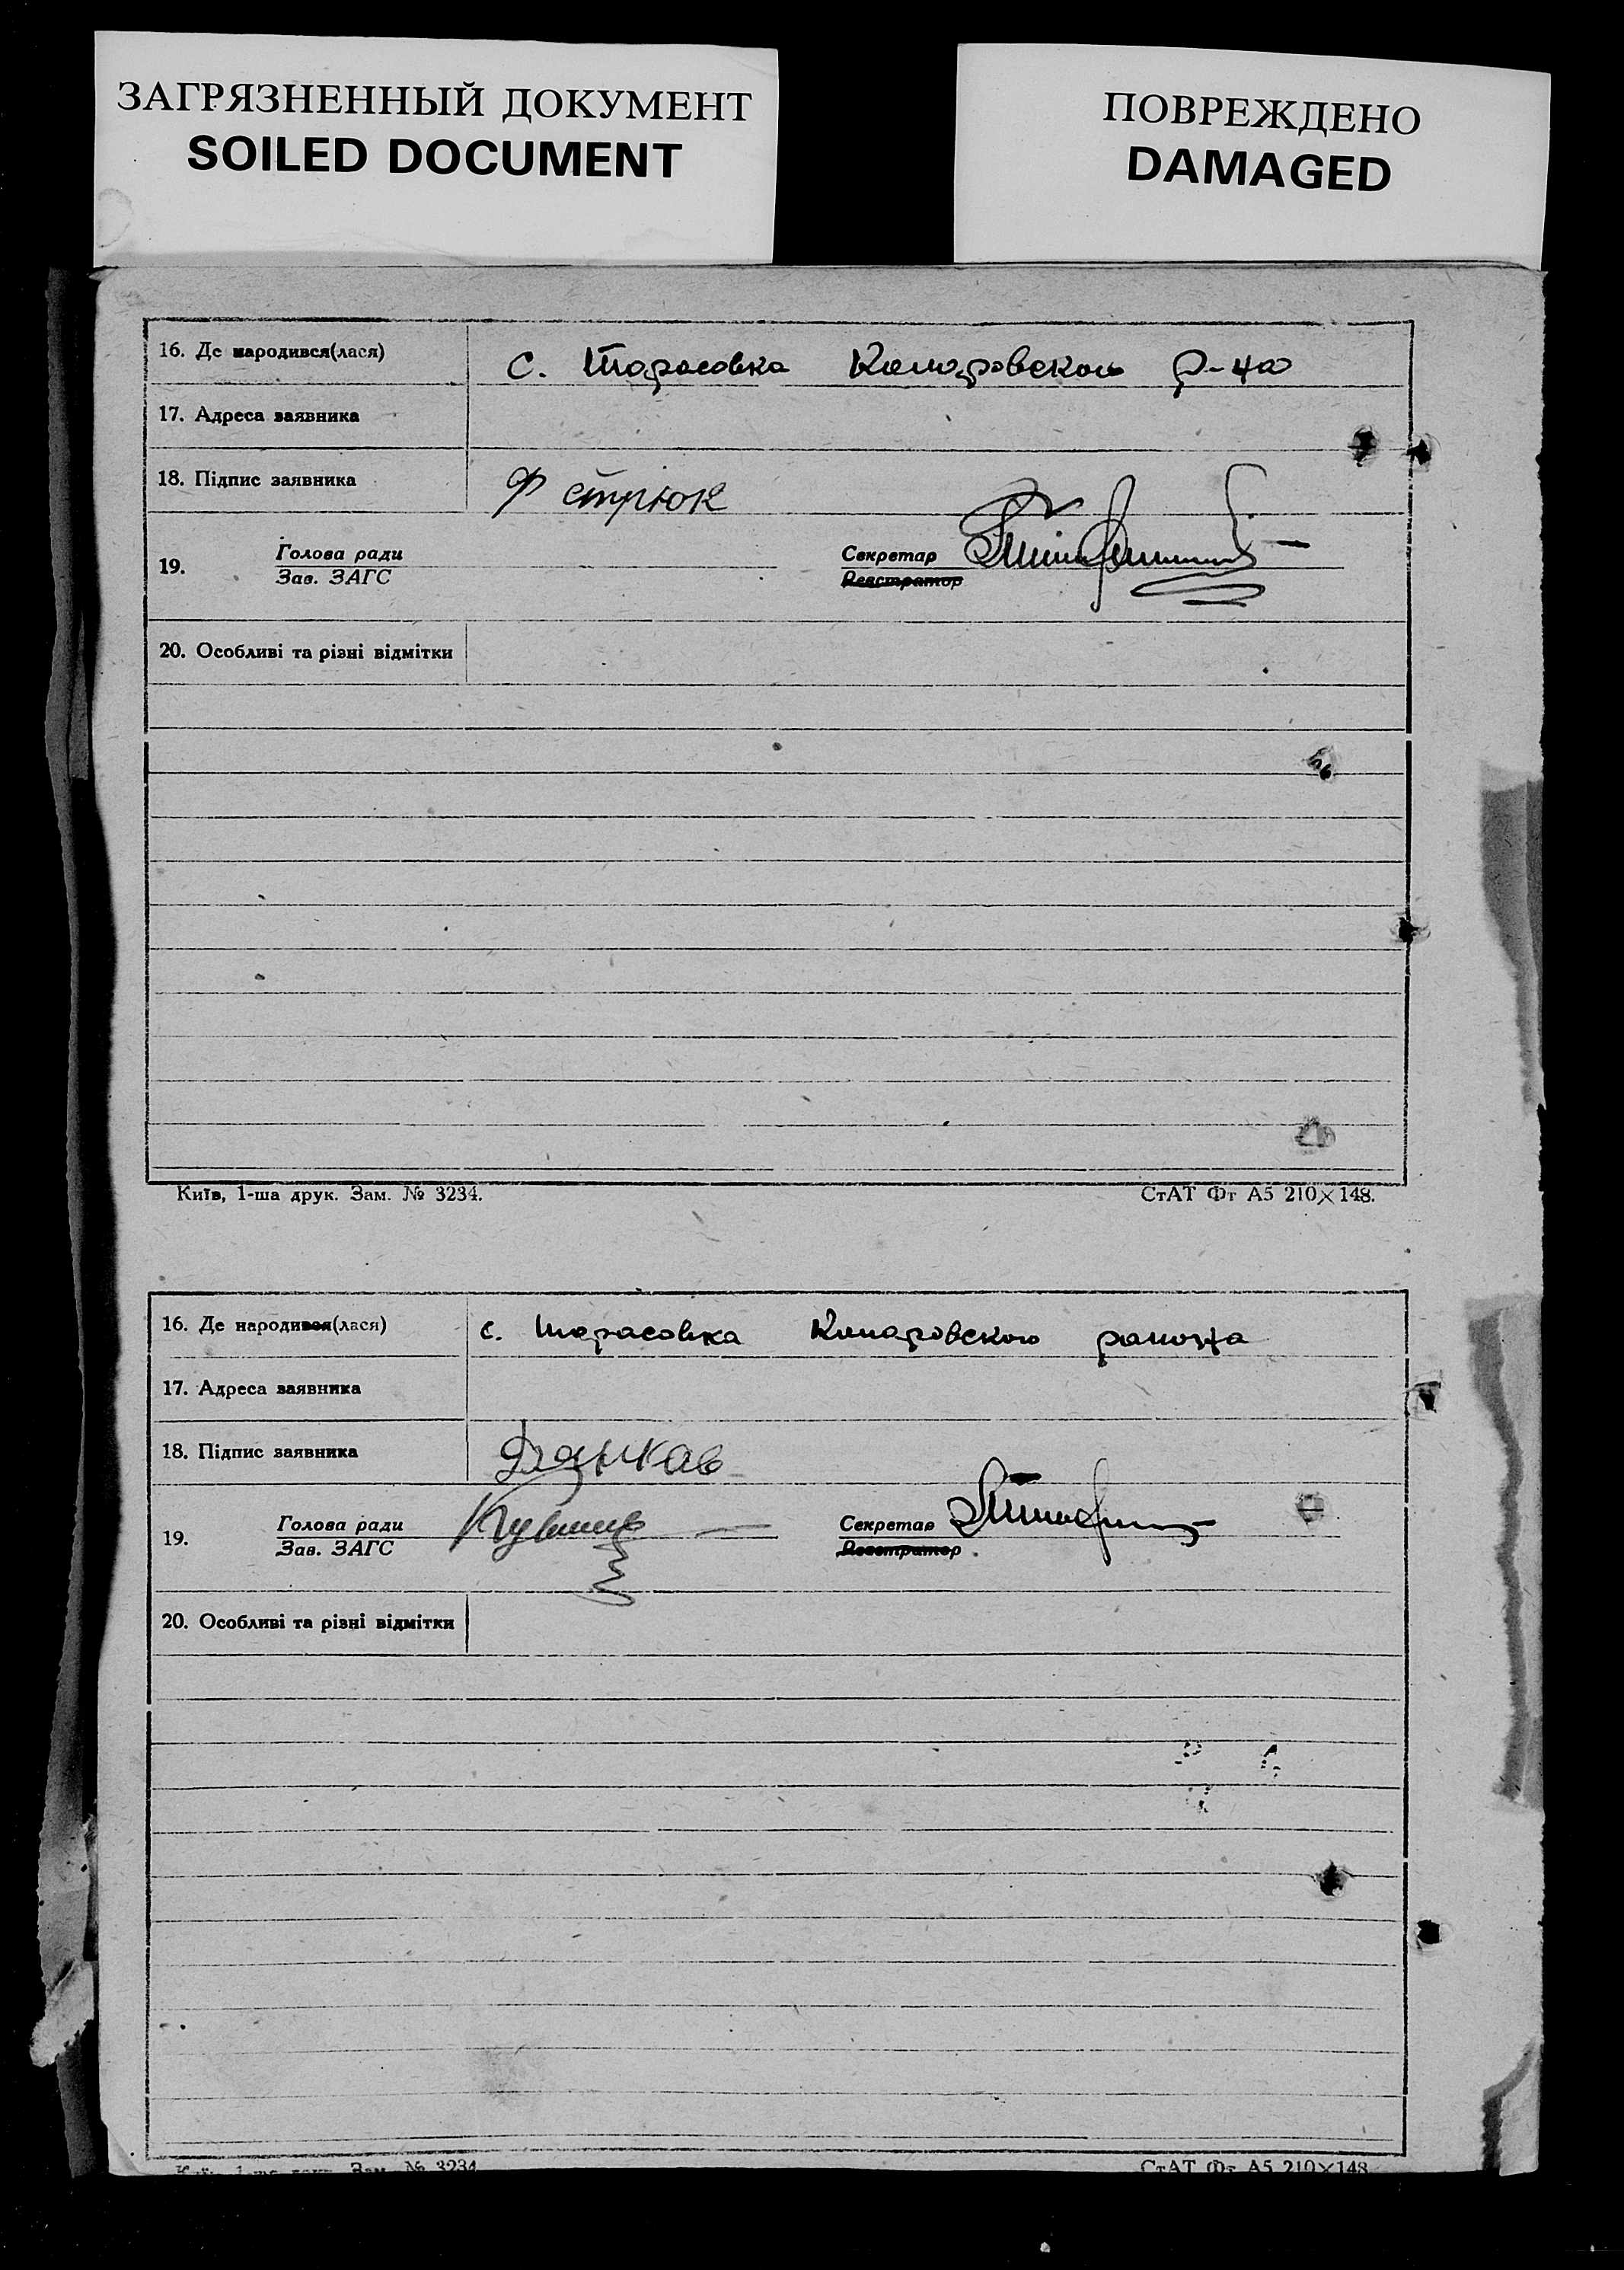 ЗАГРЯЗНЕННЫЙ ДОКУМЕНТ
SOILED DOCUMENT
ПОВРЕЖДЕНО
DAMAGED
16. Де народився(лася) с. Тарасовка Комаровского р-на
17. Адреса заявника
18. Підпис заявника Ф Стрюк
19. Голова ради
Зав. ЗАГС
Секретар
Реєстратор
20. Особливі та різні відмітки
Київ, 1-ша друк. Зам. № 3234.
СтАТ Фт А5 210×148.
16. Де народився(лася) с. Тарасовка Комаровского района
17. Адреса заявника
18. Підпис заявника
19. Голова ради
Зав. ЗАГС
Секретар
Реєстратор
20. Особливі та різні відмітки
Київ, 1-ша друк. Зам. № 3234
СтАТ Фт А5 210×148